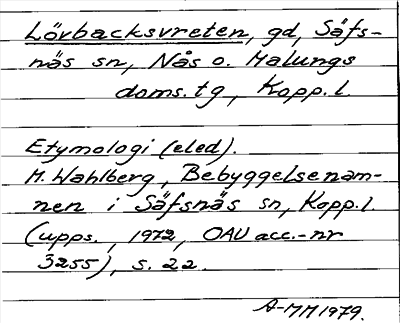 Lövbacksvreten, gd, Säfs-
näs sn, Nås o. Malungs
doms.tg, Kopp.l.
Etymologi (eled).
M. Wahlberg, Bebyggelsenam-
nen i Säfsnäs sn, Kopp.l.
(upps., 1972, OAU acc.-nr
3255), s. 22.
A-MM 1979.